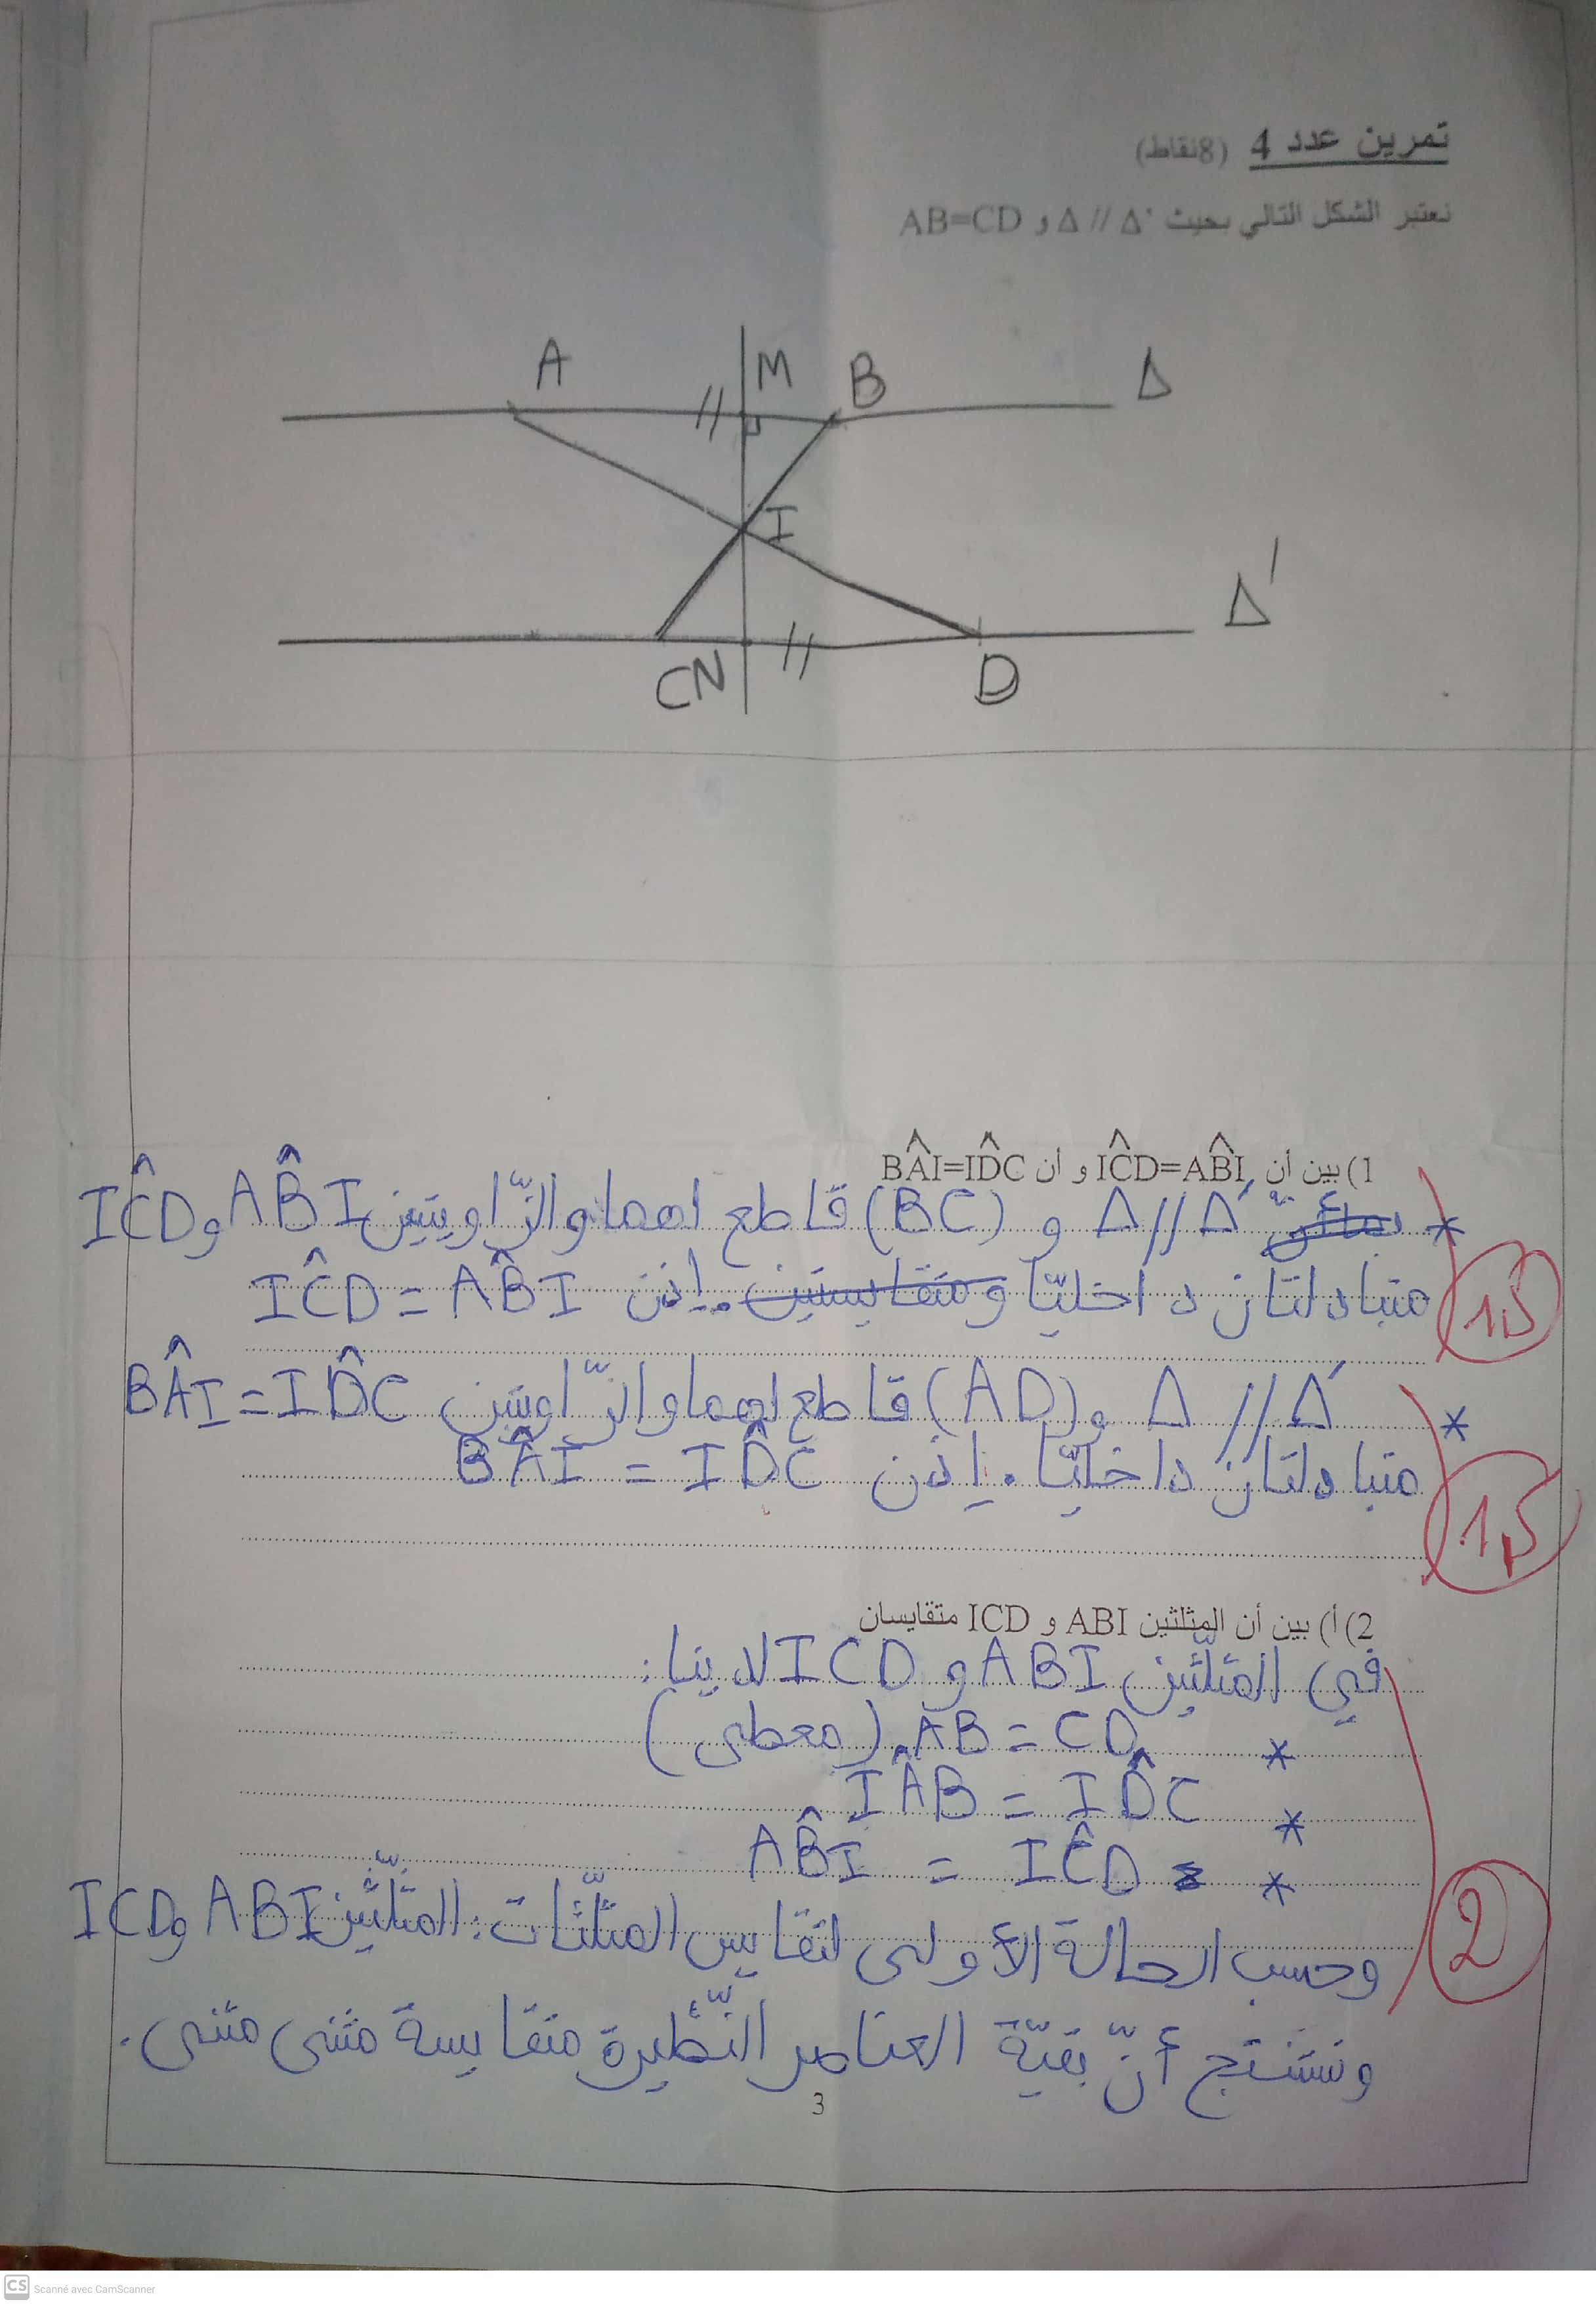 تمرين عدد 4 (8نقاط)
نعتبر الشكل التالي بحيث Δ // Δ' و AB=CD
A M B Δ
I
Δ'
C N D
1) بين أن IĈD=AB̂I و أن BÂI=ID̂C
* Δ//Δ' و (BC) قاطع لهما والزّاويتين AB̂I و IĈD
متبادلتان داخليّا ومتقايستين. إذن IĈD = AB̂I
1,5
* Δ // Δ' و (AD) قاطع لهما والزّاويتين BÂI = ID̂C
متبادلتان داخليّا. إذن BÂI = ID̂C
1,5
2) أ) بين أن المثلثين ABI و ICD متقايسان
في المثلّثين ABI و ICD لدينا:
* AB = CD (معطى)
* IÂB = ID̂C
* AB̂I = IĈD
وحسب الحالة الأولى لتقايس المثلّثات: المثلّثين ABI و ICD
2
ونستنتج أنّ بقيّة العناصر النّظيرة متقايسة مثنى مثنى.
3
CS Scanné avec CamScanner